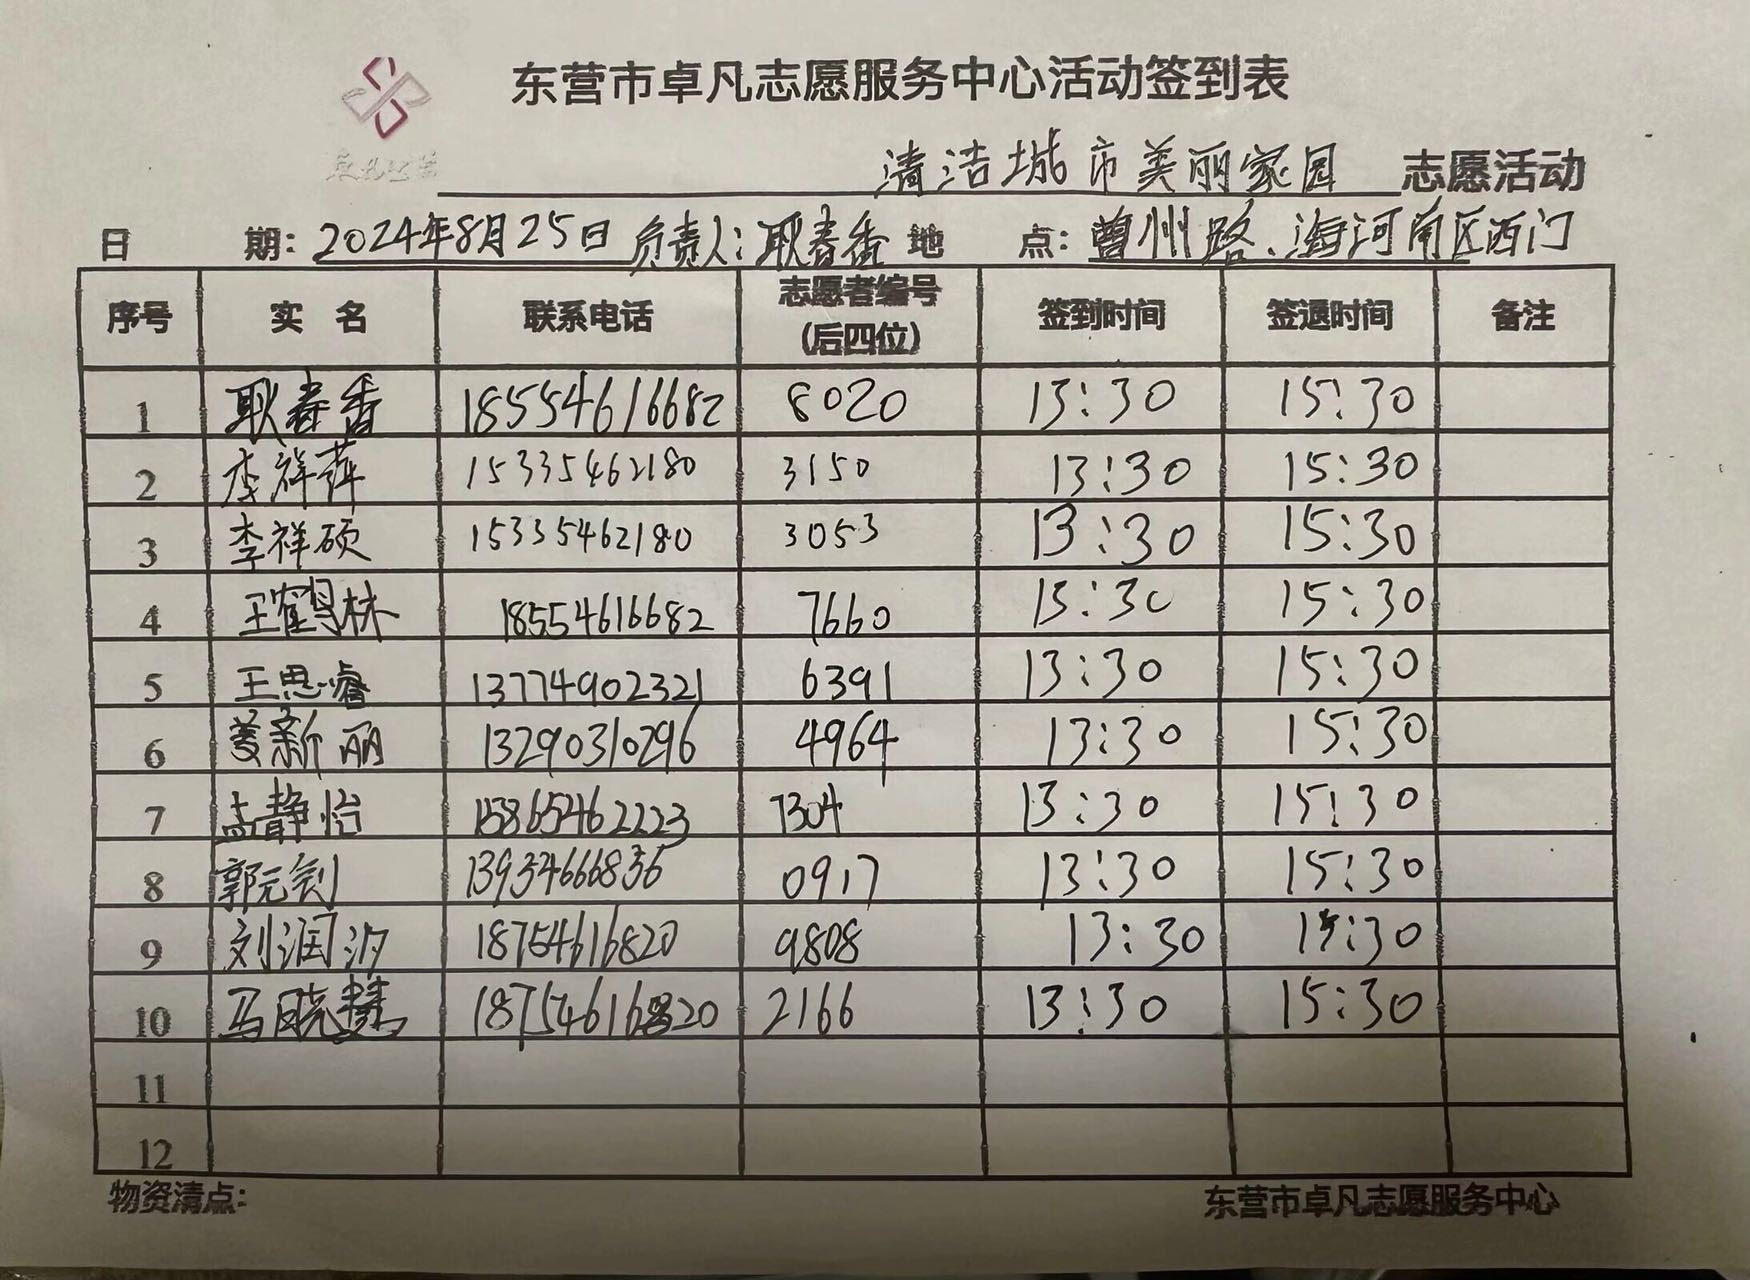 东营市卓凡志愿服务中心活动签到表
清洁城市美丽家园 志愿活动
日 期: 2024年8月25日 负责人: 耿春香 地 点: 曹州路、海河南区西门
序号 实 名 联系电话 志愿者编号(后四位) 签到时间 签退时间 备注
1 耿春香 18554616682 8020 13:30 15:30
2 李祥萍 15335462180 3150 13:30 15:30
3 李祥硕 15335462180 3053 13:30 15:30
4 王鹤林 18554616682 7660 13:30 15:30
5 王思睿 13774902321 6391 13:30 15:30
6 姜新丽 13290310296 4964 13:30 15:30
7 孟静怡 15865462223 7304 13:30 15:30
8 郭元 13934666836 0917 13:30 15:30
9 刘润汐 18754616820 9808 13:30 15:30
10 马晓慧 18754616820 2166 13:30 15:30
11
12
物资清点: 东营市卓凡志愿服务中心